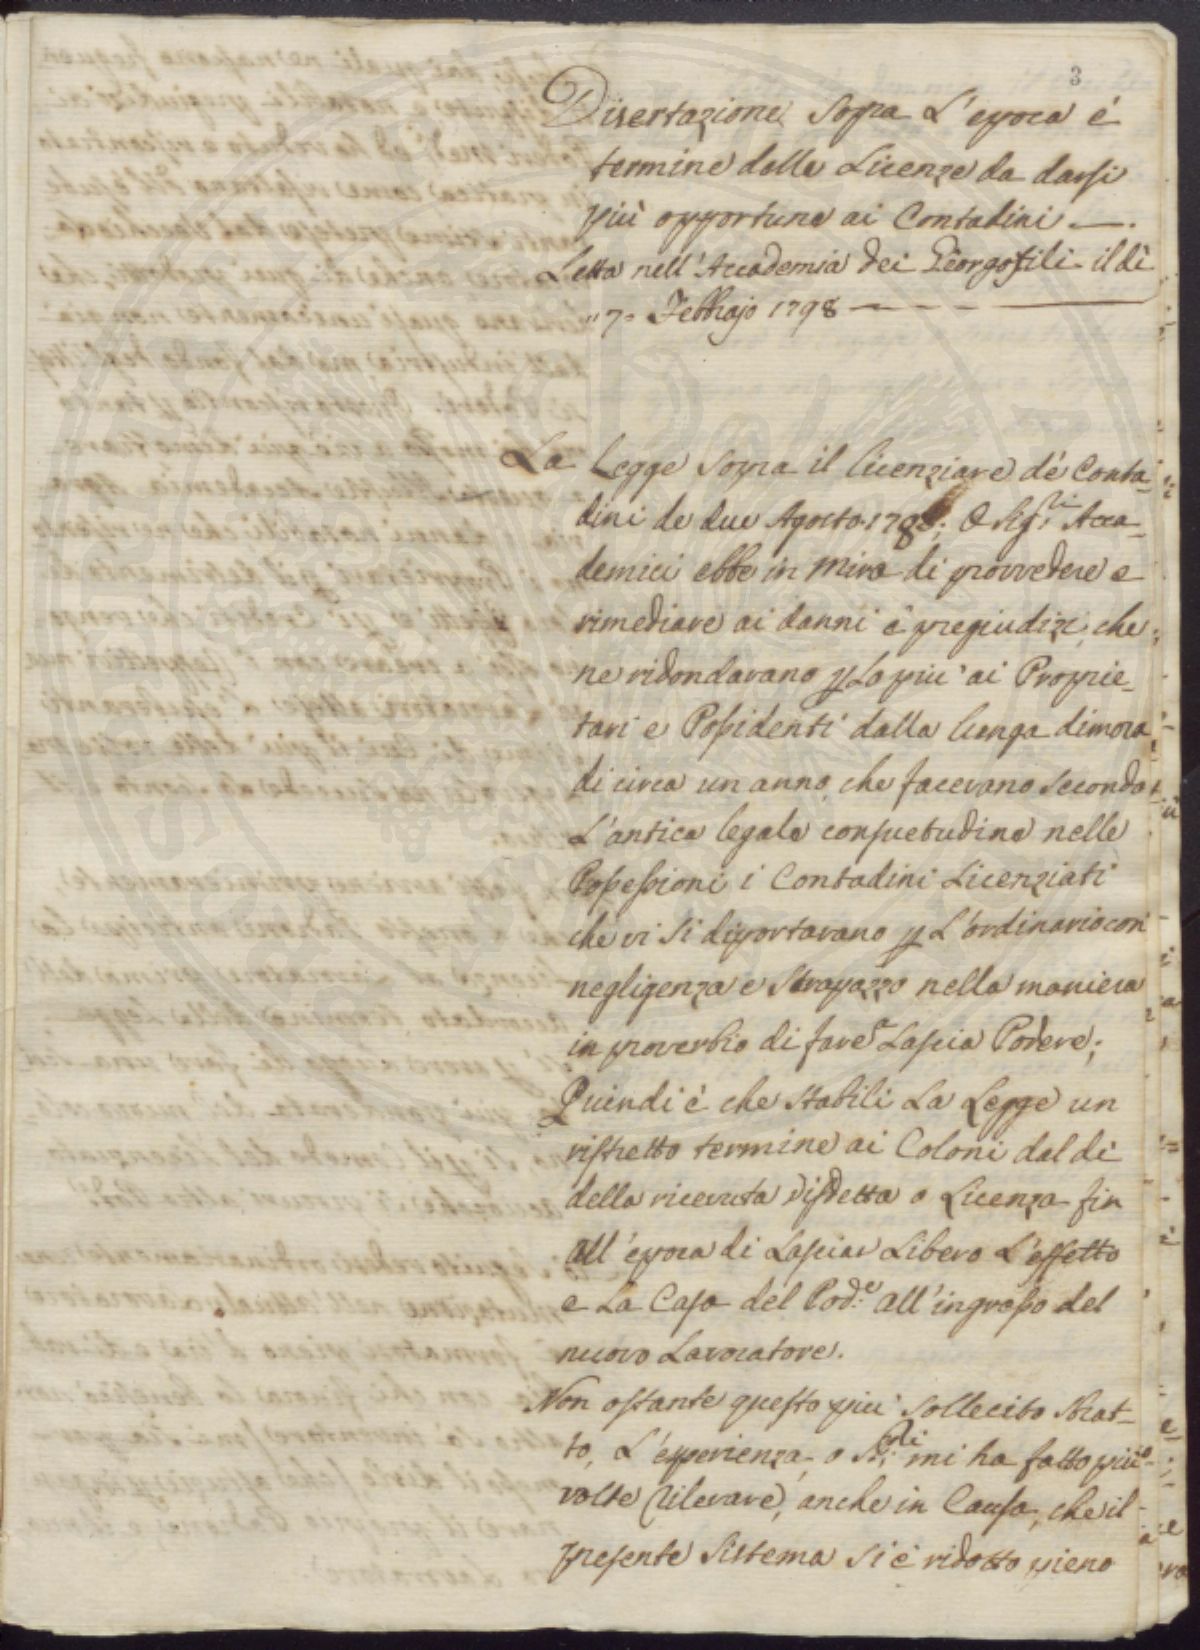 3
Disertazione Sopra L'epoca é
termine delle Licenze da darsi
più opportune ai Contadini —.
Letta nell'Accademia dei Georgofili il dì
"7= Febbrajo 1798 — — — —
La Legge Sopra il licenziare de' Conta-
dini de due Agosto 178 ; O Sig.ri Acca-
demici ebbe in mira di provvedere e
rimediare ai danni é pregiudizi, che
ne ridondavano p Lo piu' ai Proprie-
tari e Possidenti dalla lunga dimora
di circa un anno, che facevano secondo
L'antica legale consuetudine nelle
Possessioni i Contadini Licenziati
che vi Si diportavano p L'ordinario con
negligenza e Strapazzo nella maniera
in proverbio di fare Lascia Podere;
Quindi è che Stabilì La Legge un
ristretto termine ai Coloni dal dì
della ricevuta disdetta o Licenza fin
all'epoca di Lasciar Libero L'effetto
e La Casa del Pod.e all'ingresso del
nuovo Lavoratore.
Non ostante questo più sollecito Sbrat-
to, L'esperienza, o S.ri mi ha fatto più
volte rilevare, anche in Causa, che il
presente Sistema Si è ridotto pieno